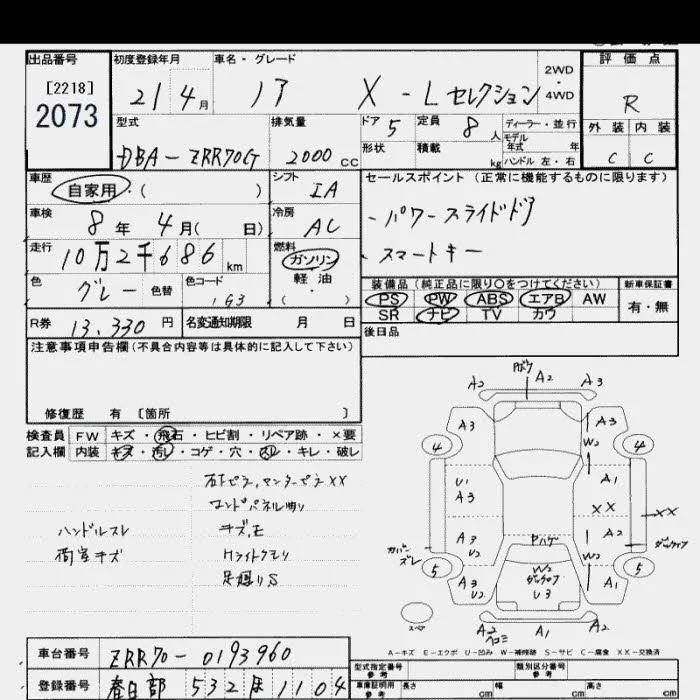 出品番号
[2218]
2073
初度登録年月
21 4月
車名・グレード
ノア X-Lセレクション
2WD
・
4WD
評価点
R
外装 内装
C C
型式
DBA-ZRR70G
排気量
2000 cc
ドア 5
定員 8 人
ディーラー・並行
モデル
年式 年
形状
積載 kg
ハンドル 左・右
車歴
自家用・( )
シフト
IA
セールスポイント (正常に機能するものに限ります)
・パワースライドドア
・スマートキー
車検
8年 4月( 日)
冷房
AC
走行
10万2千686 km
燃料
ガソリン
軽油
・( )
色
グレー 色替
色コード
1G3
装備品 (純正品に限り○をつけてください)
PS PW ABS エアB AW
SR ナビ TV カワ
新車保証書
有・無
R券 13.330 円
名変通知期限 月 日
後日品
注意事項申告欄(不具合内容等は具体的に記入して下さい)
修復歴 有 [箇所 ]
検査員
記入欄
FW キズ・飛石・ヒビ割・リペア跡・×要
内装 キズ・汚レ・コゲ・穴・スレ・キレ・破レ
右Fピラ,センターピラXX
コンドパネル曲り
ハンドルスレ
キズ,E
荷室キズ
Hライトクモリ
足廻りS
A2 A2 A3
A3 A3
4 W2 4
U1 A3 A1
XX XX
A3 U2 A2
カバーズレ
W2
5 W2 5
A3 U2 U3 A1
スペア
A2 ヘコミ A1 A2
A-キズ E-エクボ U-凹み W-補修跡 S-サビ C-腐食 XX-交換済
車台番号
ZRR70-0193960
登録番号
春日部 532 ほ 1104
型式指定番号
参考
類別区分番号
参考
車庫証明用
参考
長さ cm 幅 cm 高さ cm